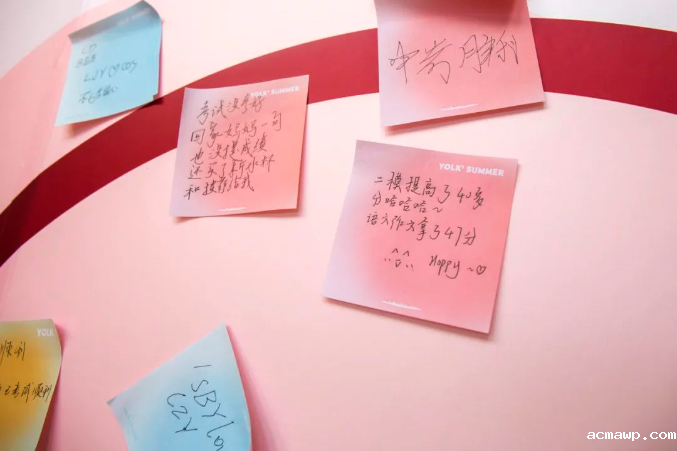 LJY (9COS
YOLK® SUMMER
考试没考好
回家妈妈一句
也没提成绩
还买了新水杯
和披萨给我
中考 胜利
YOLK® SUMMER
二模提高了40多
分哈哈哈~
语文作文拿了47分
Happy ~♡
YOLK
顺利
顺利
LSBY
CZY
acmawp.com